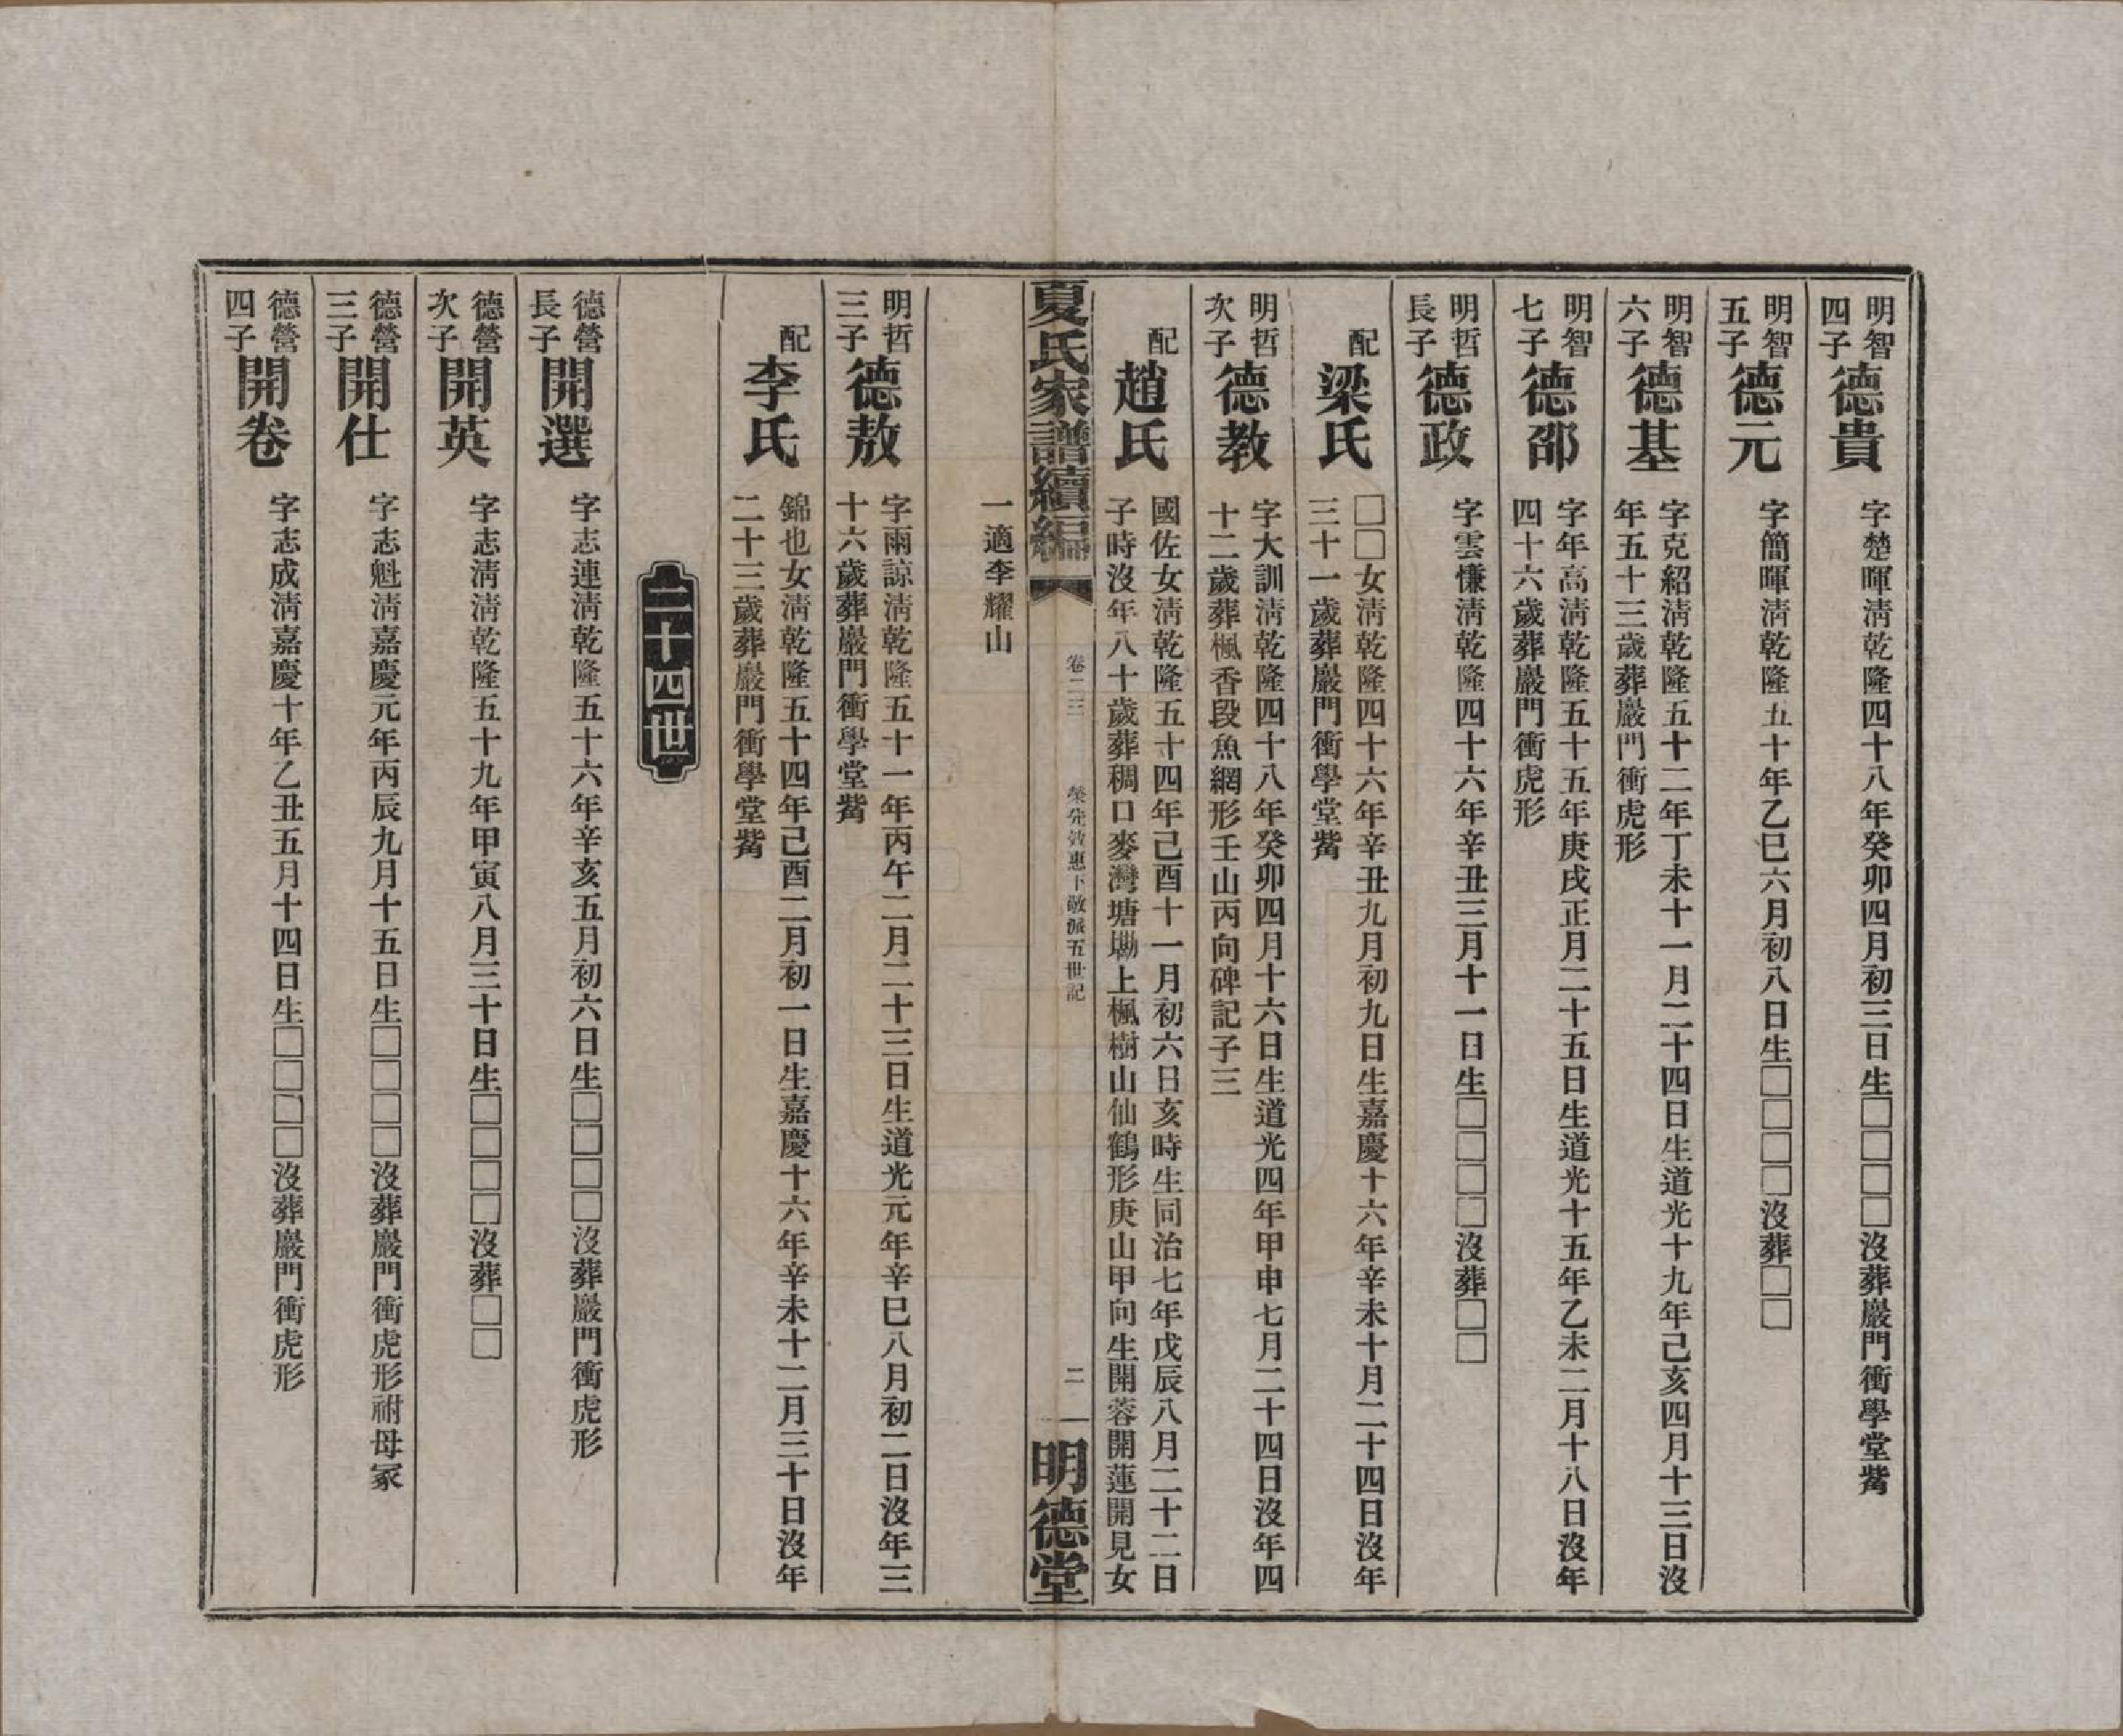 明智
四子
德貴
字楚暉淸乾隆四十八年癸卯四月初三日生□□□□沒葬巖門衝學堂觜
明智
五子
德元
字簡暉淸乾隆五十年乙巳六月初八日生□□□□沒葬□□
明智
六子
德基
字克紹淸乾隆五十二年丁未十一月二十四日生道光十九年己亥四月十三日沒
年五十三歲葬巖門衝虎形
明智
七子
德邵
字年高淸乾隆五十五年庚戌正月二十五日生道光十五年乙未二月十八日沒年
四十六歲葬巖門衝虎形
明哲
長子
德政
字雲慊淸乾隆四十六年辛丑三月十一日生□□□□沒葬□□
配
梁氏
□□女淸乾隆四十六年辛丑九月初九日生嘉慶十六年辛未十月二十四日沒年
三十一歲葬巖門衝學堂觜
明哲
次子
德教
字大訓淸乾隆四十八年癸卯四月十六日生道光四年甲申七月二十四日沒年四
十二歲葬楓香段魚網形壬山丙向碑記子三
配
趙氏
國佐女淸乾隆五十四年己酉十一月初六日亥時生同治七年戊辰八月二十二日
子時沒年八十歲葬稠口麥灣塘墈上楓樹山仙鶴形庚山甲向生開蓉開蓮開見女
夏氏家譜續編
卷二三
榮分效惠下敬派五世記
二
明德堂
一適李耀山
明哲
三子
德敖
字雨諒淸乾隆五十一年丙午二月二十三日生道光元年辛巳八月初二日沒年三
十六歲葬巖門衝學堂觜
配
李氏
錦也女淸乾隆五十四年己酉二月初一日生嘉慶十六年辛未十二月三十日沒年
二十三歲葬巖門衝學堂觜
二十四世
德營
長子
開選
字志連淸乾隆五十六年辛亥五月初六日生□□□□沒葬巖門衝虎形
德營
次子
開英
字志淸淸乾隆五十九年甲寅八月三十日生□□□□沒葬□□
德營
三子
開仕
字志魁淸嘉慶元年丙辰九月十五日生□□□□沒葬巖門衝虎形祔母冢
德營
四子
開卷
字志成淸嘉慶十年乙丑五月十四日生□□□□沒葬巖門衝虎形